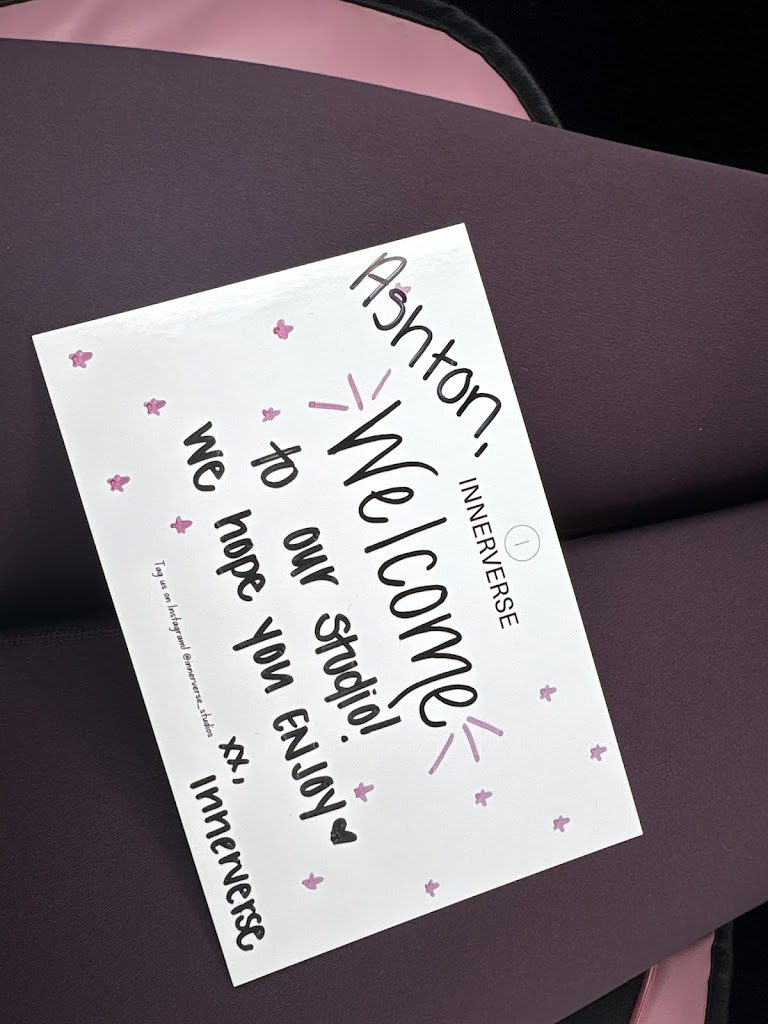 Ashton,
INNERVERSE
Welcome
to our studio!
we hope you ENJOY♥
xx,
Innerverse
Tag us on Instagram! @innerverse_studios